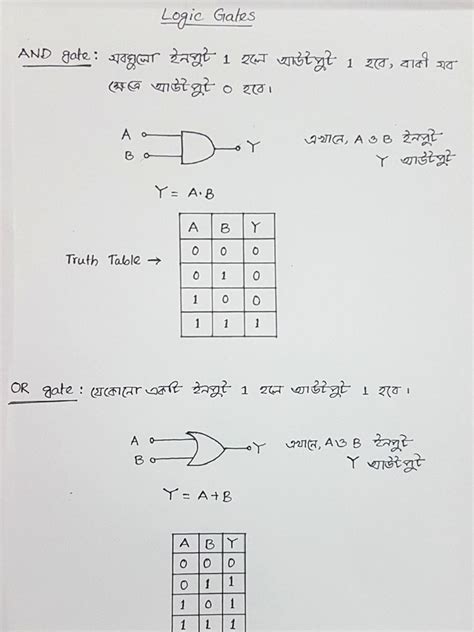 Logic Gates
AND gate : সবগুলো ইনপুট 1 হলে আউটপুট 1 হবে, বাকী সব
ক্ষেত্রে আউটপুট 0 হবে।
A
B
Y
এখানে, A ও B ইনপুট
Y আউটপুট
Y = A·B
Truth Table →
A B Y
0 0 0
0 1 0
1 0 0
1 1 1
OR gate : যেকোনো একটি ইনপুট 1 হলে আউটপুট 1 হবে।
A
B
Y
এখানে, A ও B ইনপুট
Y আউটপুট
Y = A+B
A B Y
0 0 0
0 1 1
1 0 1
1 1 1